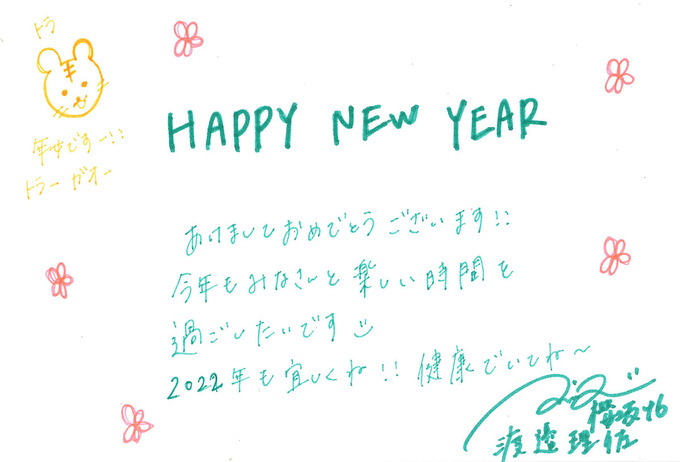 トラ
年中ですー!!
トラー ガオー
HAPPY NEW YEAR
あけましておめでとうございます!!
今年もみなさんと楽しい時間を
過ごしたいです
2022年も宜しくね!! 健康でいてね〜
櫻坂46
渡邉理佐